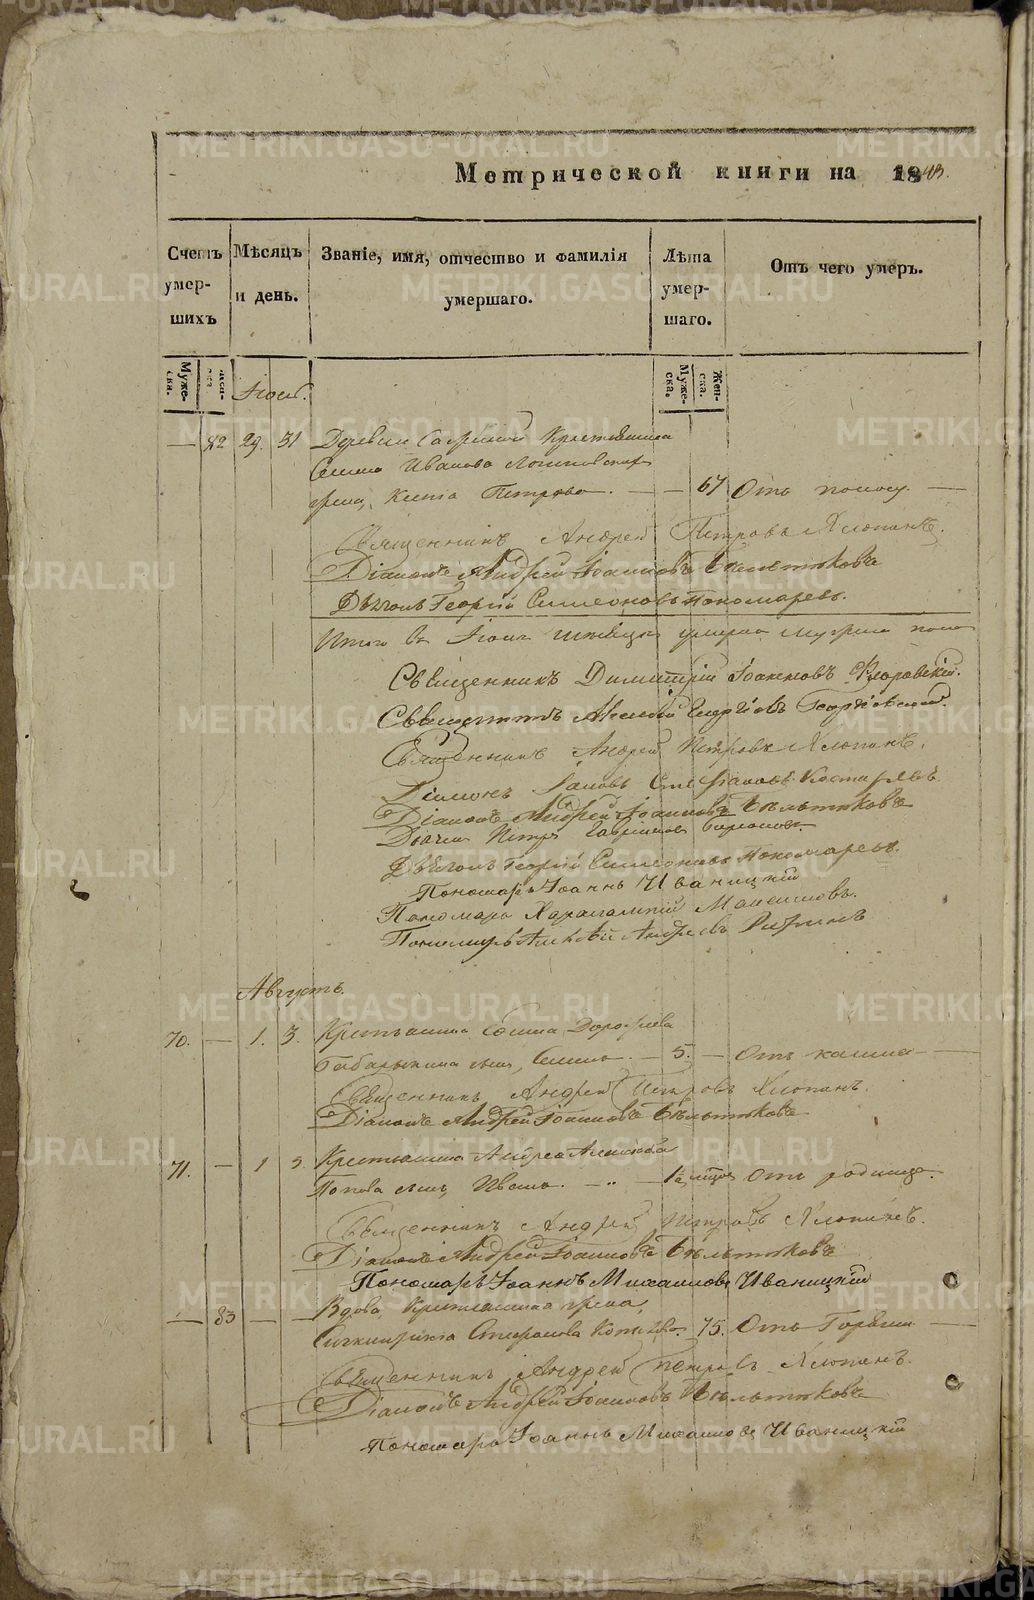 Метрической книги на 1843.
Счетъ умер-шихъ
Мѣсяцъ и день.
Званіе, имя, отчество и фамилія умершаго.
Лѣта умер-шаго.
Отъ чего умеръ.
Муже-ска.
Жен-ска.
Муже-ска.
Жен-ска.
— 82 29. 31 Деревни
Иванова
жена, Петрова. — — 67 Отъ поносу —
Священникъ Андрей Петровъ Хлопинъ.
Діаконъ Андрей Іоанновъ Бѣльтюковъ
Дьячокъ Георгій Симеоновъ Пономаревъ.
Итого въ
Священникъ Димитрій Іоанновъ Флоровскій.
Священникъ Алексій Георгіевскій.
Священникъ Андрей Петровъ Хлопинъ.
Діаконъ Іаковъ Стефановъ Костаревъ
Діаконъ Андрей Іоанновъ Бѣльтюковъ
Дьячекъ Петръ Гавриловъ
Дьячокъ Георгій Симеоновъ Пономаревъ.
Пономарь Іоаннъ Иваницкій
Пономарь Харалампій
Пономарь Алексѣй Андреевъ
Августъ.
70. — 1. 3. Крестьянина Дорофеева
сынъ, — 5. — Отъ кашля —
Священникъ Андрей Петровъ Хлопинъ.
Діаконъ Андрей Іоанновъ Бѣльтюковъ
71. — 1 3. Крестьянина Андрея
Попова сынъ Иванъ. — „ — Отъ родимца.
Священникъ Андрей Петровъ Хлопинъ.
Діаконъ Андрей Іоанновъ Бѣльтюковъ
Пономарь Іоаннъ Михаиловъ Иваницкій
— 83 — — Вдова, Крестьянская жена,
75. Отъ Горячки —
Священникъ Андрей Петровъ Хлопинъ.
Діаконъ Андрей Іоанновъ Бѣльтюковъ
Пономарь Іоаннъ Михаиловъ Иваницкій
METRIKI.GASO-URAL.RU